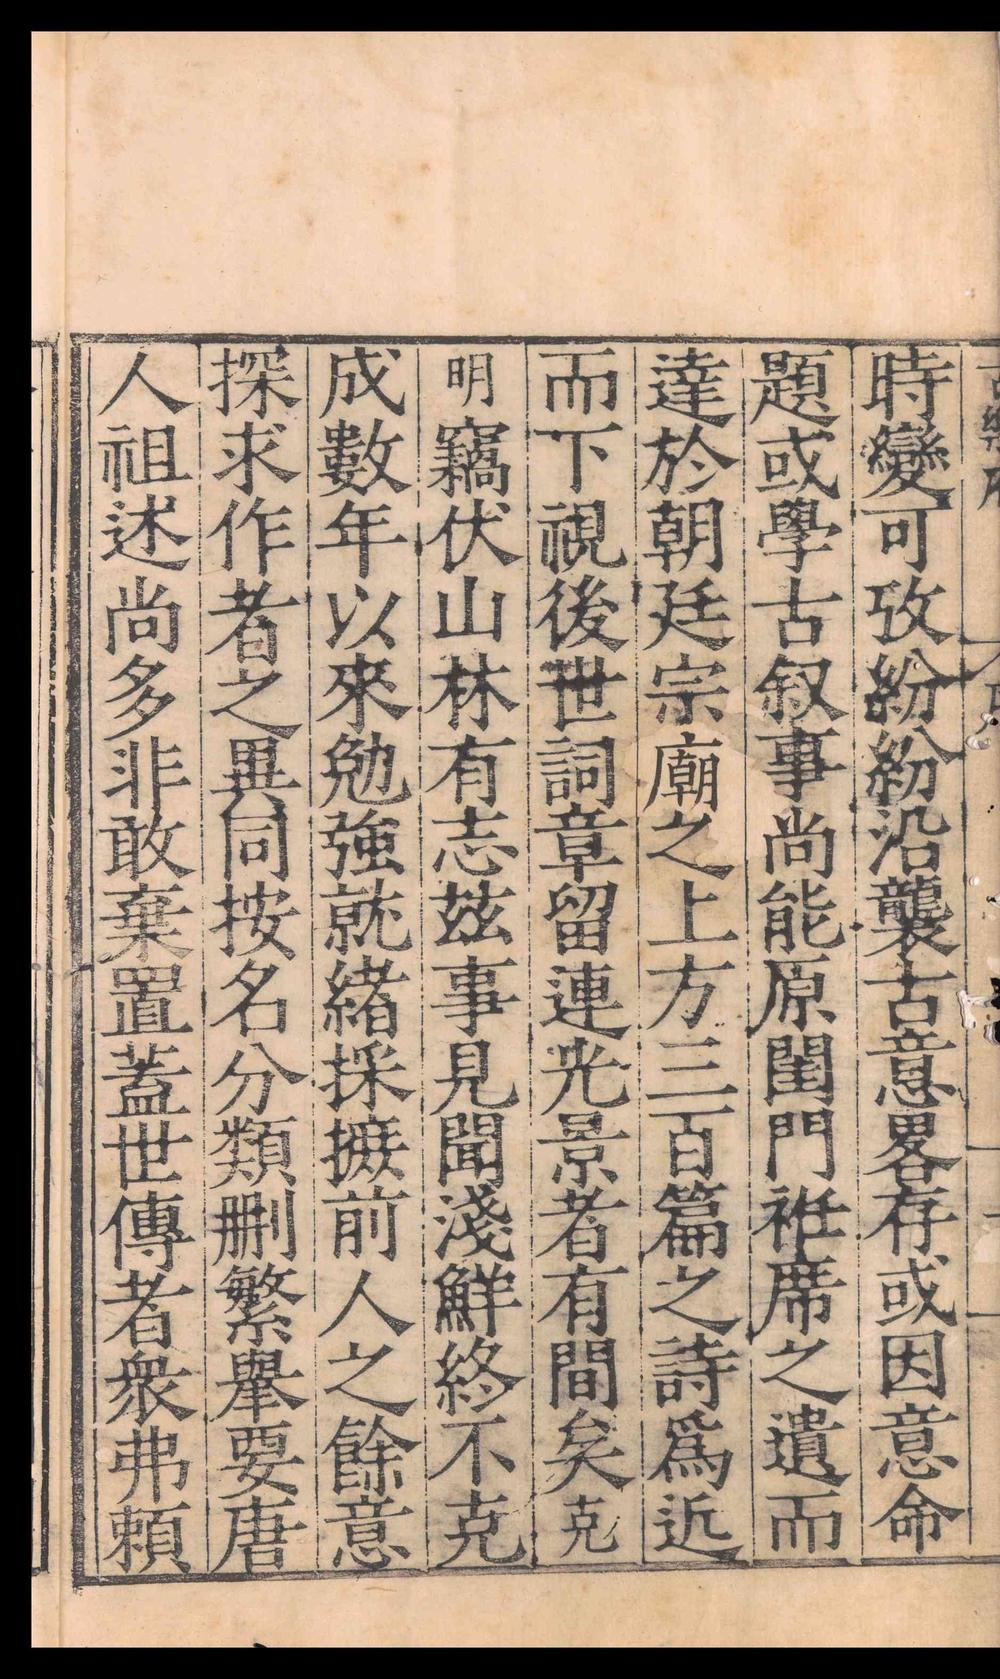 時變可攷紛紛沿襲古意畧存或因意命
題或學古叙事尚能原閨門袵席之遺而
達於朝廷宗廟之上方三百篇之詩爲近
而下視後世詞章留連光景者有間矣克
明竊伏山林有志茲事見聞淺鮮終不克
成數年以來勉強就緒採摭前人之餘意
探求作者之異同按名分類刪繁舉要唐
人祖述尚多非敢棄置蓋世傳者衆弗賴